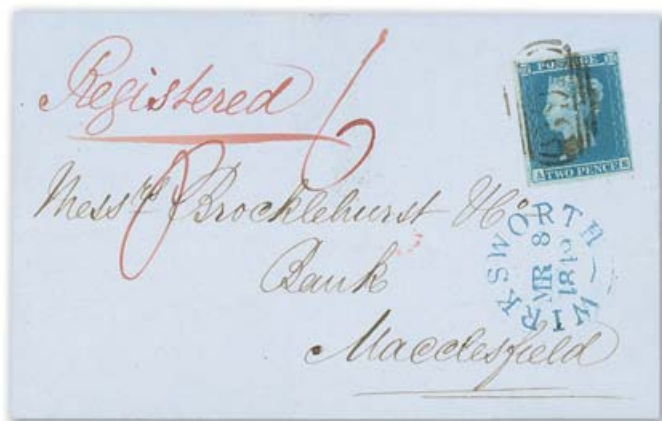 Registered 6
POSTAGE
A TWO PENCE K
Messrs Brocklehurst & Co
Bank
Macclesfield
WIRKSWORTH
MR 8